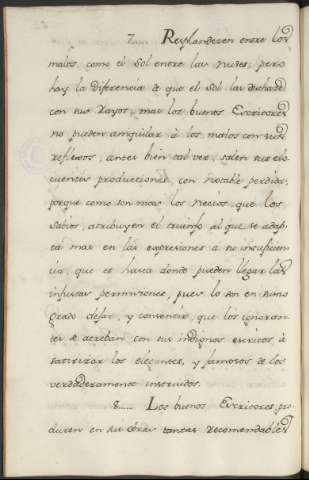 7.... Resplandecen entre los
malos, como el Sol entre las nubes; pero
hay la diferencia de que el Sol las deshace
con sus rayos, mas los buenos Escritores
no pueden aniquilar à los malos con sus
reflexos, antes bien tal vez, salen sus elo-
cuentes producciones, con notable perdida,
porque como son mas los necios, que los
sabios, atribuyen el triunfo al que se adap-
ta mas en las expresiones a su insuficien-
cia, que es hasta donde pueden llegar las
injustas permisiones, pues lo son en sumo
grado dejar, y consentir, que los ignoran-
tes se atrevan con sus indignos escritos à
satirizar los elegantes, y famosos de los
verdaderamente instruidos.
8.... Los buenos Escritores, pro-
ducen en sus obras tantas recomendables